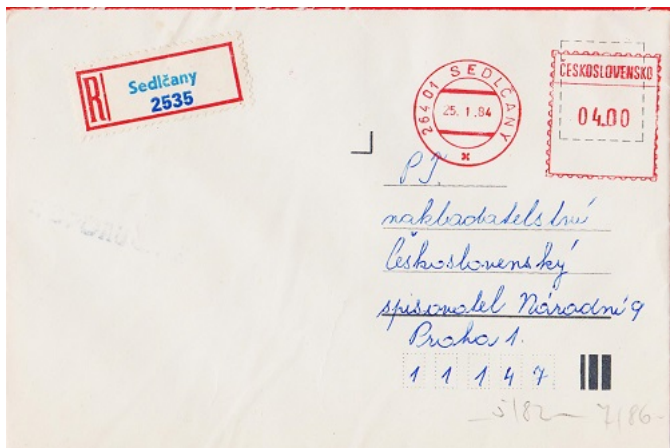 R
Sedlčany
2535
26401 SEDLČANY
25.1.84
ČESKOSLOVENSKO
04.00
PT.
nakladatelství
Československý
spisovatel Národní 9
Praha 1.
1 1 1 4 7
5/82 — 7/86 -